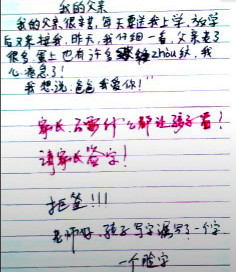 我的父亲
我的父亲很辛苦,每天要送我上学,放学
后又来接我,昨天,我仔细一看,父亲老了
很多,脸上也有许多zhòu纹,我
心凑急了!
我想说:爸爸我爱你!"
家长,不要什么都让孩子看!
请家长签字!
拒签!!!
老师好,孩子写字漏写了一个字
一个脸字